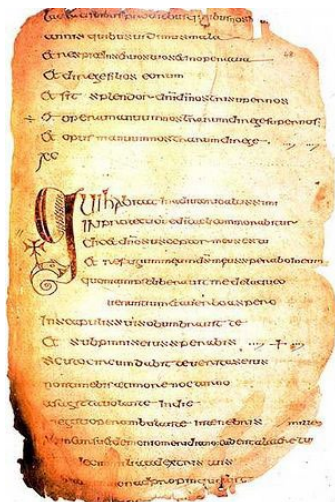 diebus quibus nos
annis quibus uidimus mala
Et respice in seruos tuos et in opera tua
Et direge filios eorum
Et sit splendor dni di nostri super nos
Et opera manuum nostrarum direge super nos
Et opus manuum nostrarum direge
xc
Qui habitat in adiutorio altissimi
IN protectione di caeli commorabitur
Dicet dno susceptor meus es tu
Et refugium meum ds meus sperabo in eum
quoniam ipse liberauit me de laqueo
uenantium et a uerbo aspero
In scapulis suis obumbrauit te
Et sub pinnis eius sperabis
scuto circumdabit te ueritas eius
non timebis a timore nocturno
a sagita uolante in die
negotio perambulante in tenebris mille
demonio meridiano cadent a latere tuo
decem milia a dextris tuis